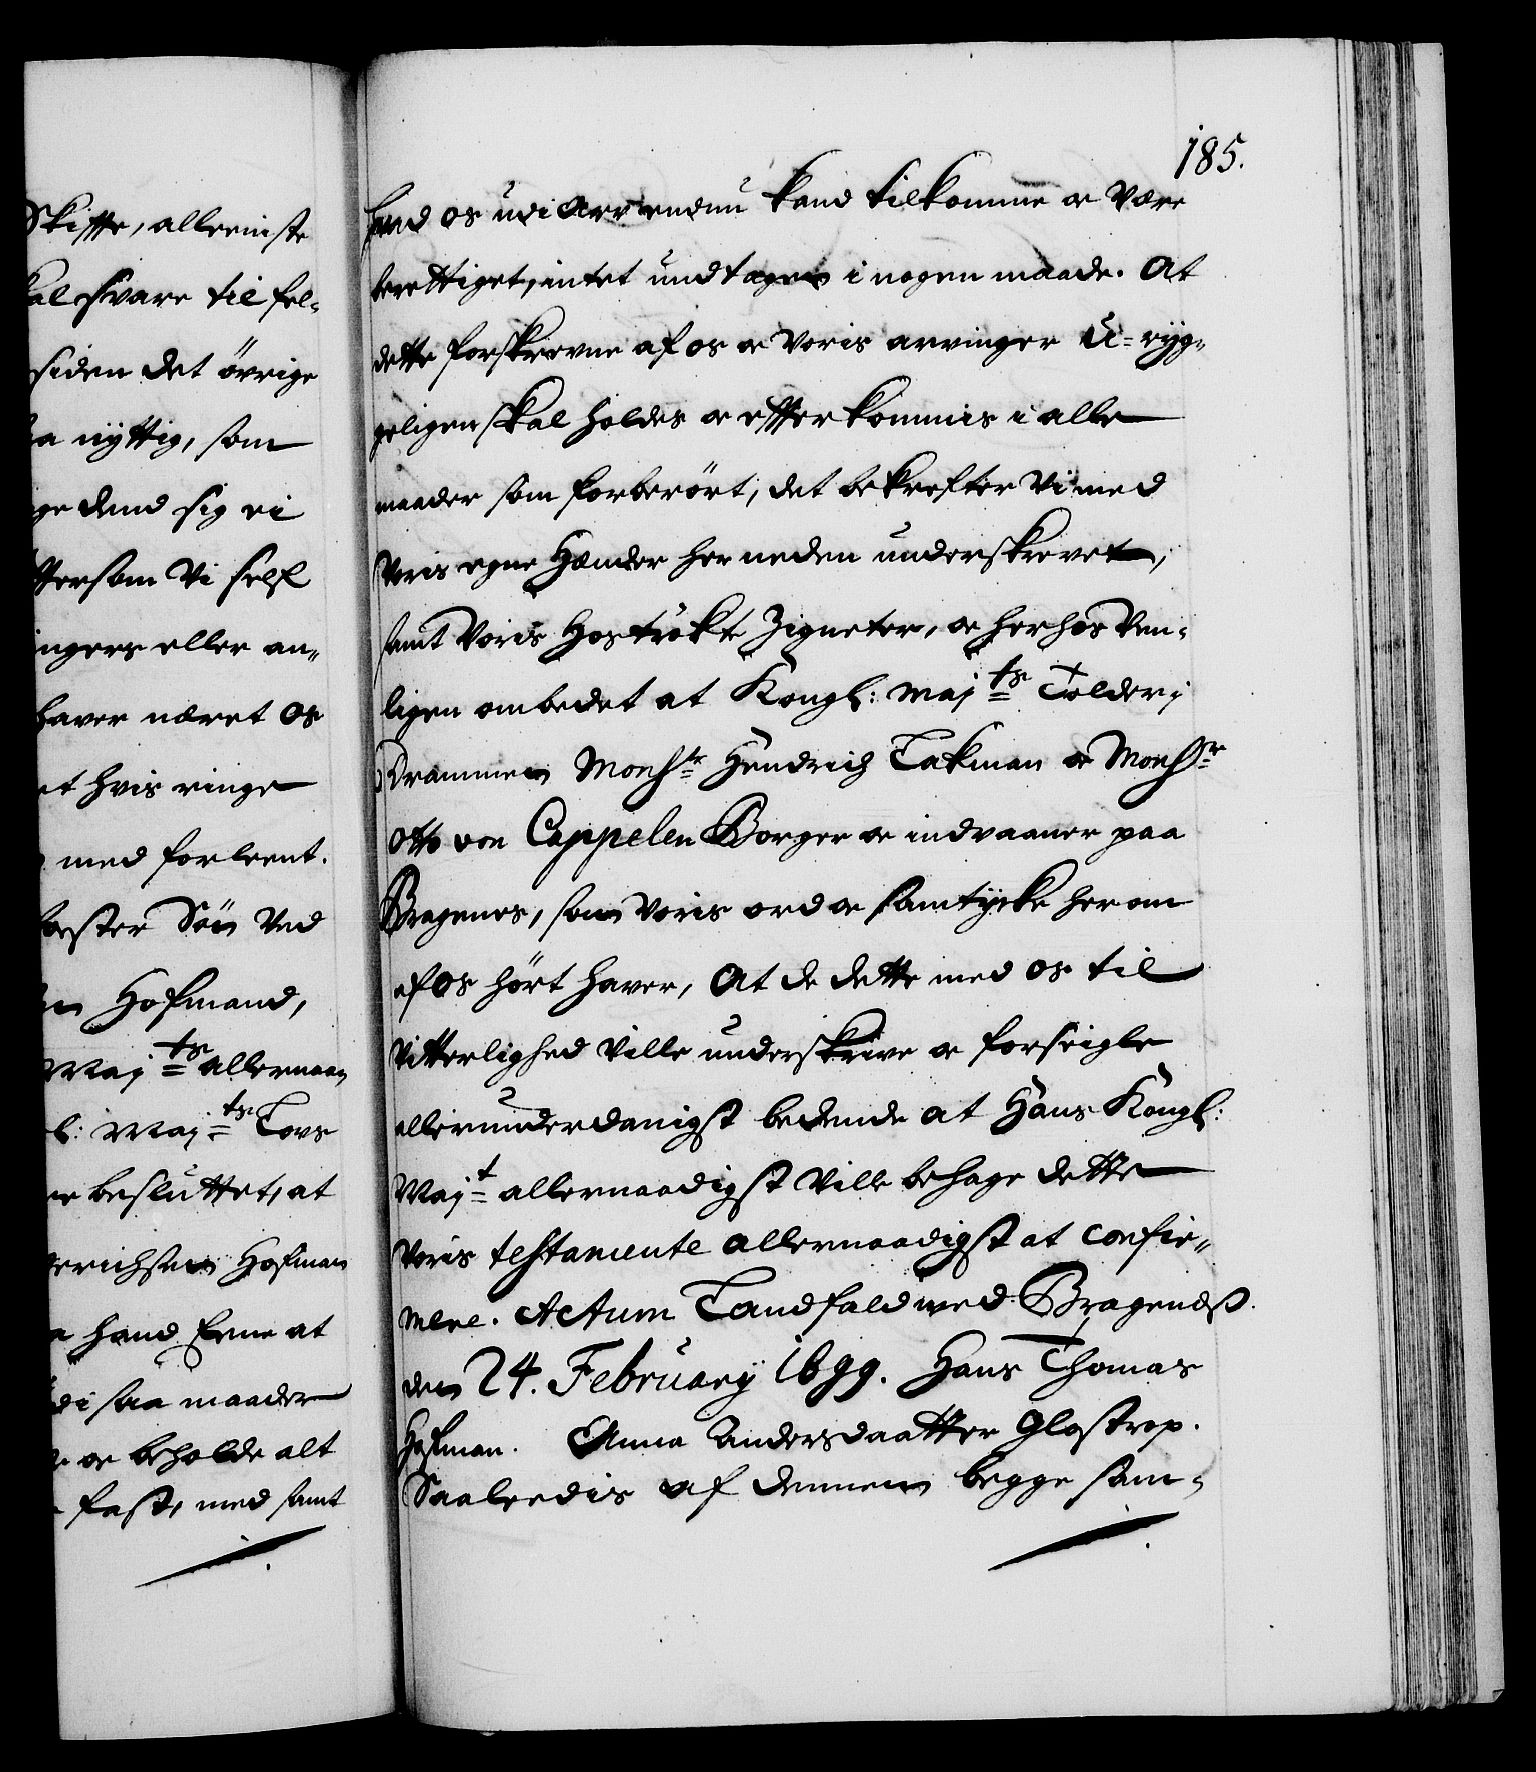 Skiffte, alleeniste
skal svare til fel-
siden det övrige
saa nyttig, som
dend sig ei
ettersom Vi self
ingers eller an-
haver næret os
et hvis ringe
med forleent.
Söster Sön Ved
Hofmand,
Maj:ts allernaa-
l: Maj:ts Lovs
besluttet, at
erichsen Hofman
hand Erne at
udi saa maader
oc beholde alt
fast, med samt
185.
hvad os udi Arv endnu kand tilkomme oc Være
berettiget, intet undtagen i nogen maade. At
dette forskrevne af os oc Voris arvinger U-ryg-
geligen skal holdes oc efterkommis i alle
maader som forberört, det bekrefter Vi med
Voris egne Hænder her neden underskrevet,
samt Voris Hoströkte Zigneter, oc herhos Ven-
ligen ombedet at Kongl: Maj:ts Tolder i
Drammen Monsr Hendrich Lakman oc Monsr
Otto von Cappelen Borger oc indvaaner paa
Bragenes, som Voris ord oc samtycke herom
af os hört haver, At de dette med os til
Vitterlighed Ville underskrive oc forseigle
allerunderdanigst bedende at Hans Kongl:
Maj:t allernaadigst Ville behage dette
Voris testamente allernaadigst at confir-
mere. Actum Landfald wed Bragenæs.
den 24. February 1699. Hans Thomas
Hofman. Anna Andersdaatter Glostrop.
Saaledis af dennem begge sam-